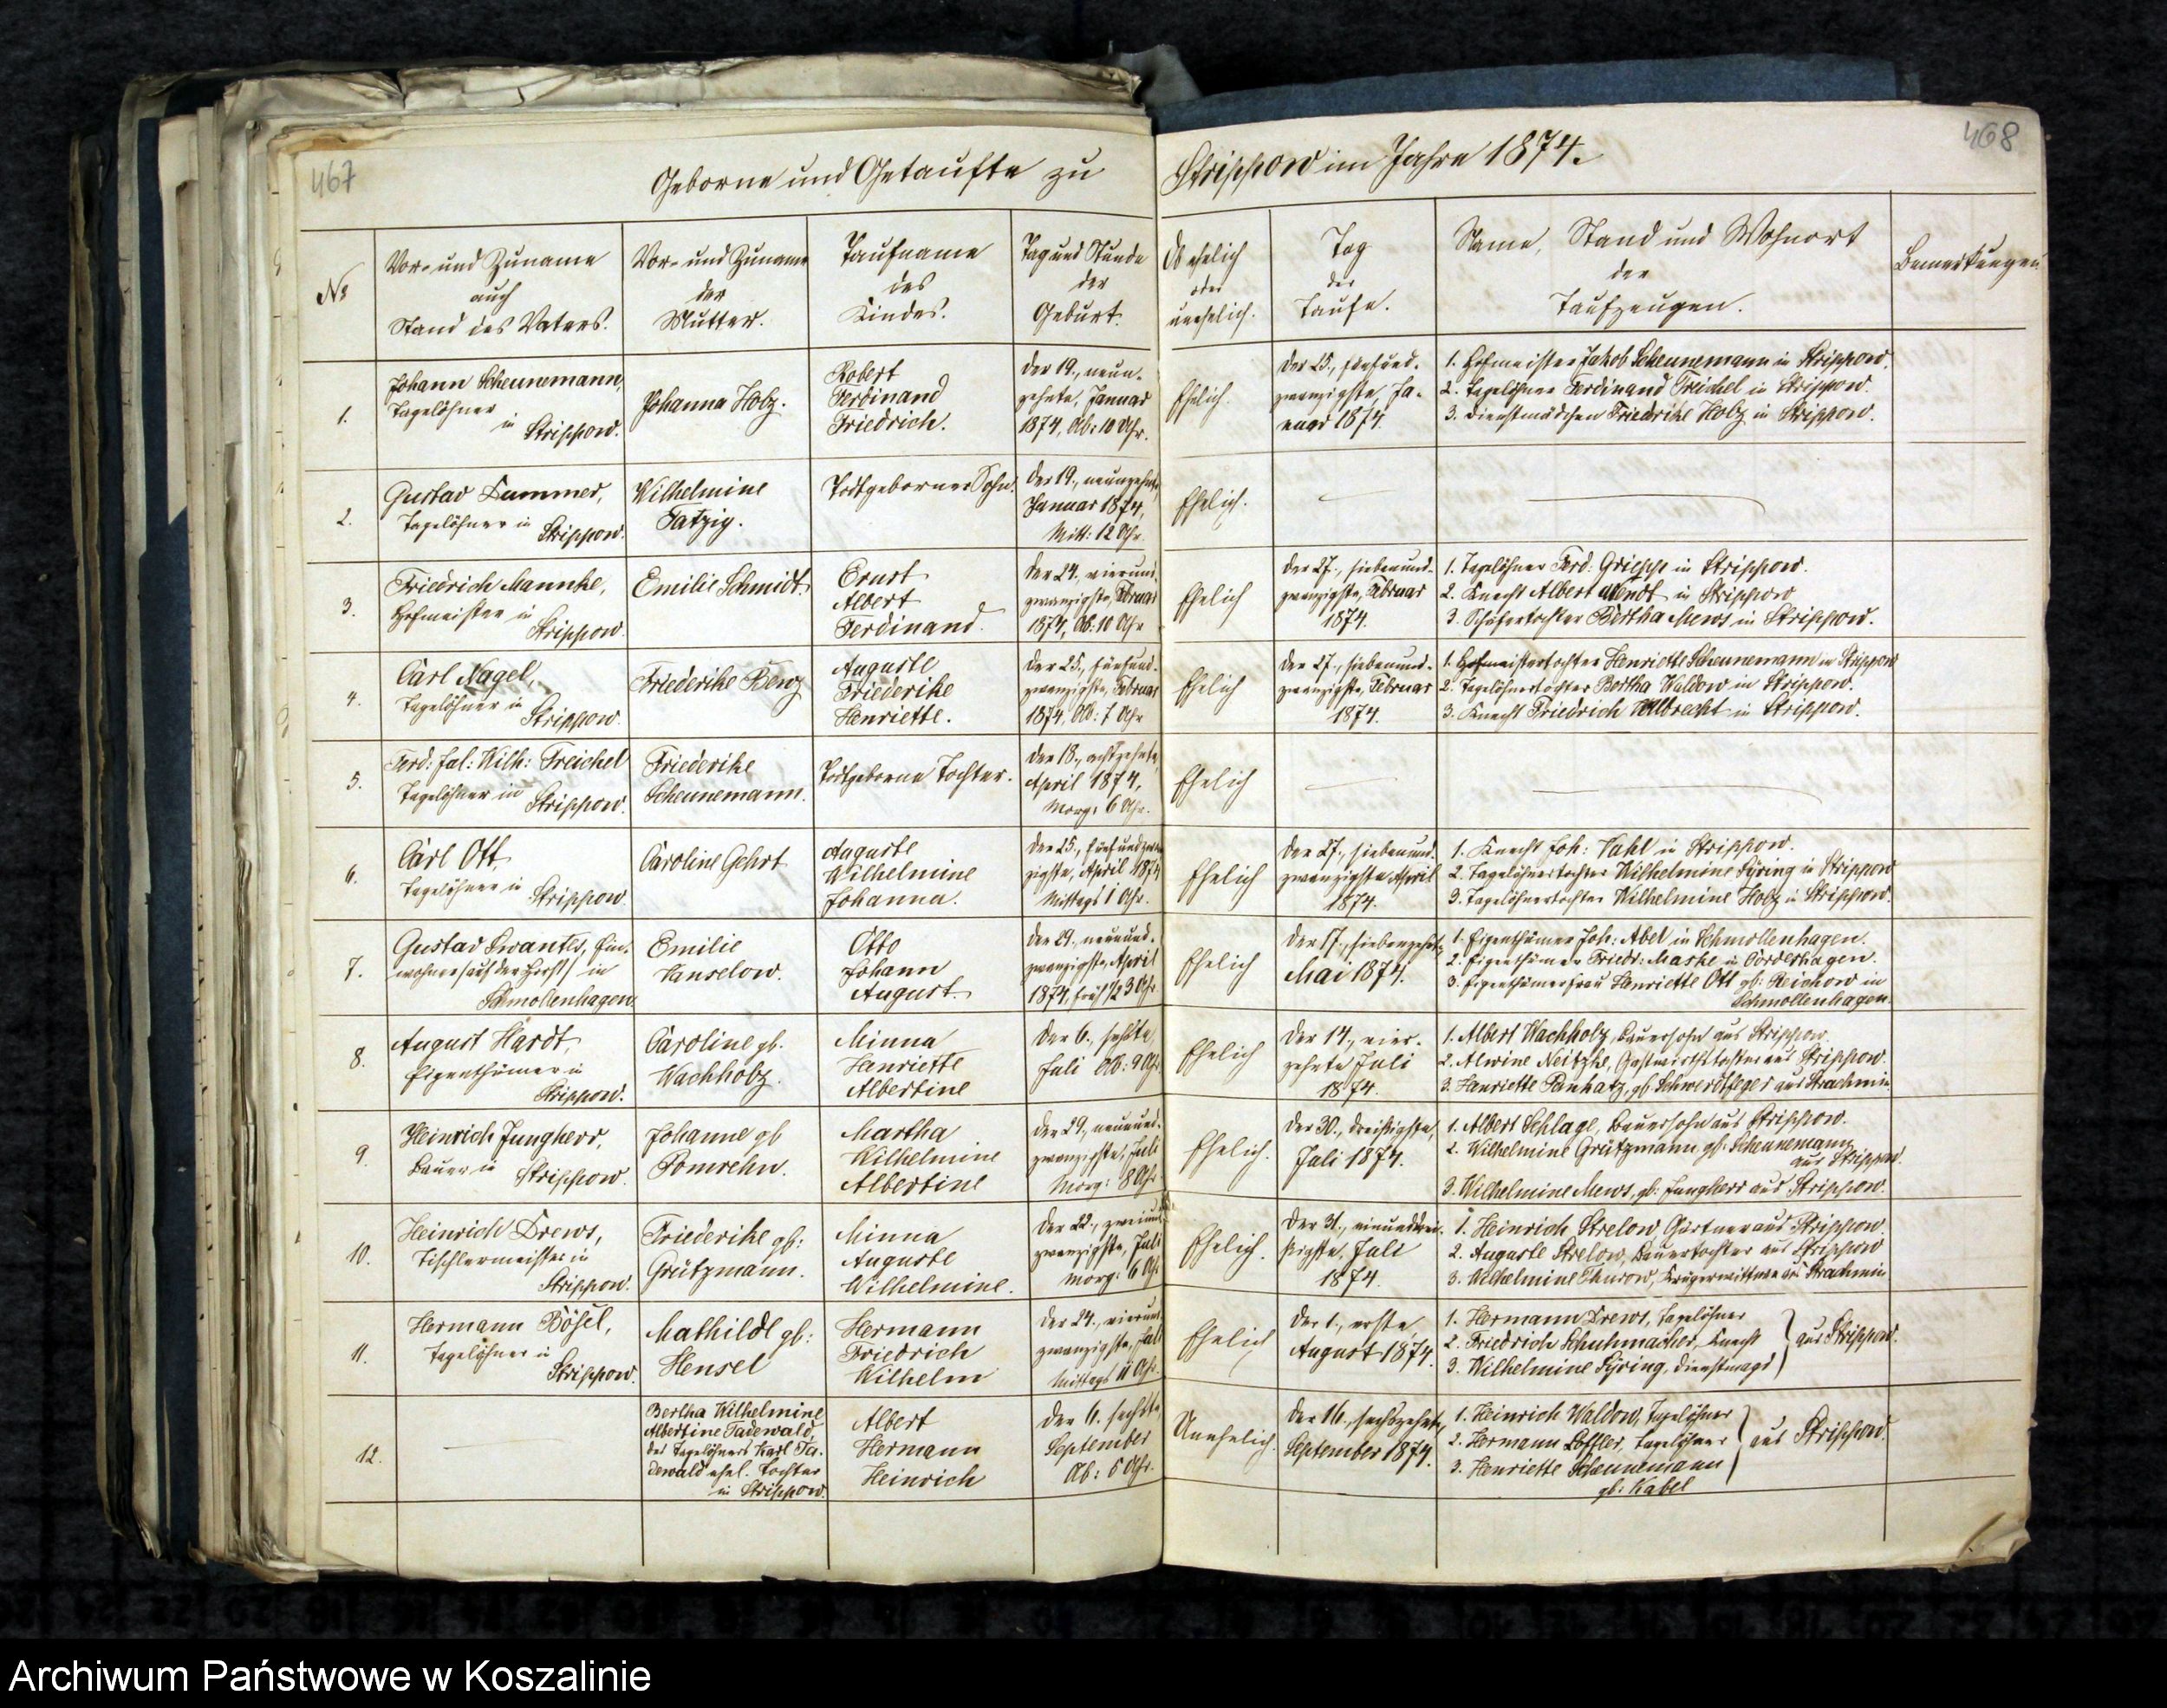 467
468
Geborne und Getaufte zu Strippow im Jahre 1874.
№
Vor- und Zuname
auch
Stand des Vaters.
Vor- und Zuname
der
Mutter.
Taufname
des
Kindes.
Tag und Stunde
der
Geburt.
Ob ehelich
oder
unehelich.
Tag
der
Taufe.
Name, Stand und Wohnort
der
Taufzeugen.
Bemerkungen
1.
Johann Scheunemann,
Tagelöhner
in
Strippow.
Johanna Holz.
Robert
Ferdinand
Friedrich.
Der 19., neun-
zehnte, Januar
1874, Ab: 10 Uhr.
Ehelich.
Der 25., fünfund-
zwanzigste, Ja-
nuar 1874.
1. Hofmeister Jakob Scheunemann in Strippow.
2. Tagelöhner Ferdinand Treichel in Strippow.
3. Dienstmädchen Friedrike Holz in Strippow.
2.
Gustav Dummer,
Tagelöhner in
Strippow.
Wilhelmine
Tatzig.
Todtgeborner Sohn.
Der 19., neunzehnte,
Januar 1874,
Mitt: 12 Uhr.
Ehelich.
3.
Friedrich Mannke,
Hofmeister in
Strippow.
Emilie Schmidt.
Ernst
Albert
Ferdinand.
Der 24., vierund-
zwanzigste, Februar
1874, Ab: 10 Uhr
Ehelich
Der 27., siebenund-
zwanzigste, Februar
1874.
1. Tagelöhner Ferd: Griepp in Strippow.
2. Knecht Albert Wendt in Strippow
3. Schäfertochter Bertha Mews in Strippow.
4.
Carl Nagel,
Tagelöhner in
Strippow.
Friederike Benz
Auguste
Friederike
Henriette.
Der 25., fünfund-
zwanzigste, Februar
1874, Ab: 7 Uhr
Ehelich
Der 27., siebenund-
zwanzigste, Februar
1874.
1. Hofmeistertochter Henriette Scheunemann in Strippow
2. Tagelöhnertochter Bertha Waldow in Strippow.
3. Knecht Friedrich Albrecht in Strippow.
5.
Ferd: Jul: Wilh: Treichel
Tagelöhner in
Strippow.
Friederike
Scheunemann.
Todtgeborne Tochter.
Der 18., achtzehnte,
April 1874,
Morg: 6 Uhr.
Ehelich
6.
Carl Ott,
Tagelöhner in
Strippow
Caroline Gehrt
Auguste
Wilhelmine
Johanna.
Der 25., fünfundzwan-
zigste, April 1874
Mittags 1 Uhr.
Ehelich
Der 27., siebenund-
zwanzigste April
1874.
1. Knecht Joh: Vahl in Strippow.
2. Tagelöhnertochter Wilhelmine Syring in Strippow
3. Tagelöhnertochter Wilhelmine Holz in Strippow.
7.
Gustav Swantes, Ein-
wohner (auf der Horst) in
Schmollenhagen
Emilie
Vanselow.
Otto
Johann
August.
Der 29., neunund-
zwanzigste, April
1874, früh 1/2 3 Uhr.
Ehelich
Der 17., siebenzehnte,
Mai 1874.
1. Eigenthümer Joh: Abel in Schmollenhagen.
2. Eigenthümer Friedr: Maske in Cordeshagen.
3. Eigenthümerfrau Henriette Ott gb: Reichow in
Schmollenhagen.
8.
August Hardt,
Eigenthümer in
Strippow.
Caroline gb.
Wachholz.
Minna
Henriette
Albertine
Der 6., sechste,
Juli Ab: 9 Uhr
Ehelich
Der 14., vier-
zehnte Juli
1874.
1. Albert Wachholz, Bauersohn aus Strippow.
2. Alwine Neitzke, Gastwirthstochter aus Strippow.
3. Henriette Panhatz, gb Schwerdtfeger aus Strachmin
9.
Heinrich Jungherr,
Bauer in
Strippow.
Johanne gb
Pomrehn.
Martha
Wilhelmine
Albertine
Der 29., neunund-
zwanzigste, Juli
Morg: 8 Uhr
Ehelich.
Der 30., dreißigste,
Juli 1874.
1. Albert Schlage, Bauersohn aus Strippow.
2. Wilhelmine Grützmann gb: Scheunemann
aus Strippow.
3. Wilhelmine Mews, gb: Jungherr aus Strippow.
10.
Heinrich Drews,
Tischlermeister in
Strippow.
Friederike gb:
Grützmann.
Minna
Auguste
Wilhelmine.
Der 22., zweiund-
zwanzigste, Juli
Morg: 6 Uhr
Ehelich.
Der 31., einunddrei-
ßigste, Juli
1874.
1. Heinrich Strelow, Gärtner aus Strippow
2. Auguste Strelow, Bauertochter aus Strippow
3. Wilhelmine Thurow, Krügerwittwe aus Strachmin
11.
Hermann Bösel,
Tagelöhner in
Strippow.
Mathilde gb:
Hensel
Hermann
Friedrich
Wilhelm
Der 24., vierund-
zwanzigste, Juli
Mittags 11 Uhr.
Ehelich
Der 1., erste,
August 1874.
1. Hermann Drews, Tagelöhner
2. Friedrich Schuhmacher, Knecht
3. Wilhelmine Syring, Dienstmagd
aus Strippow.
12.
Bertha Wilhelmine
Albertine Tadewald,
des Tagelöhners Karl Ta-
dewald ehel. Tochter
in Strippow.
Albert
Hermann
Heinrich
Der 6. sechste,
September
Ab: 6 Uhr.
Unehelich.
Der 16., sechszehnte,
September 1874.
1. Heinrich Waldow, Tagelöhner
2. Hermann Löffler, Tagelöhner
3. Henriette Scheunemann
gb: Kabel
aus Strippow.
Archiwum Państwowe w Koszalinie